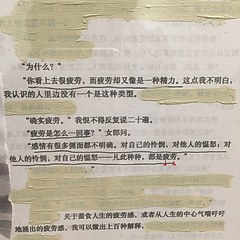 “为什么？”
“你看上去很疲劳，而疲劳却又像是一种精力。这点我不明白，
我认识的人里边没有一个是这种类型。
“确实疲劳。”我恨不得反复说二十遍。
“疲劳是怎么一回事？”女郎问。
“感情有很多侧面都不明确。对自己的怜悯、对他人的愠怒；对
他人的怜悯，对自己的愠怒——凡此种种，都是疲劳。”
关于蚕食人生的疲劳感，或者从人生的中心气喘吁吁
地涌出的疲劳感，我可以做出上百种解释，